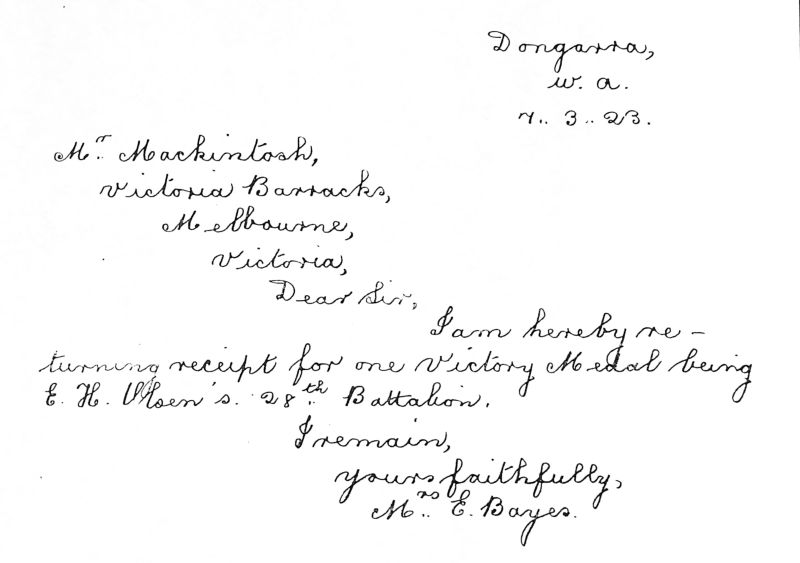 Dongarra,
W. A.
7.. 3.. 23.
Mr. Mackintosh,
Victoria Barracks,
Melbourne,
Victoria,
Dear Sir,
I am hereby re-
turning receipt for one Victory Medal being
E. H. 28th Battalion.
I remain,
yours faithfully,
Mrs. E. Bayes.